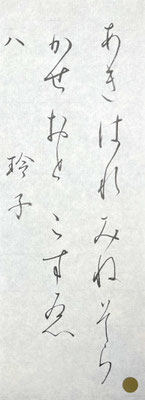 あきはれみねそら
かせおとこすゑ
八　玲子